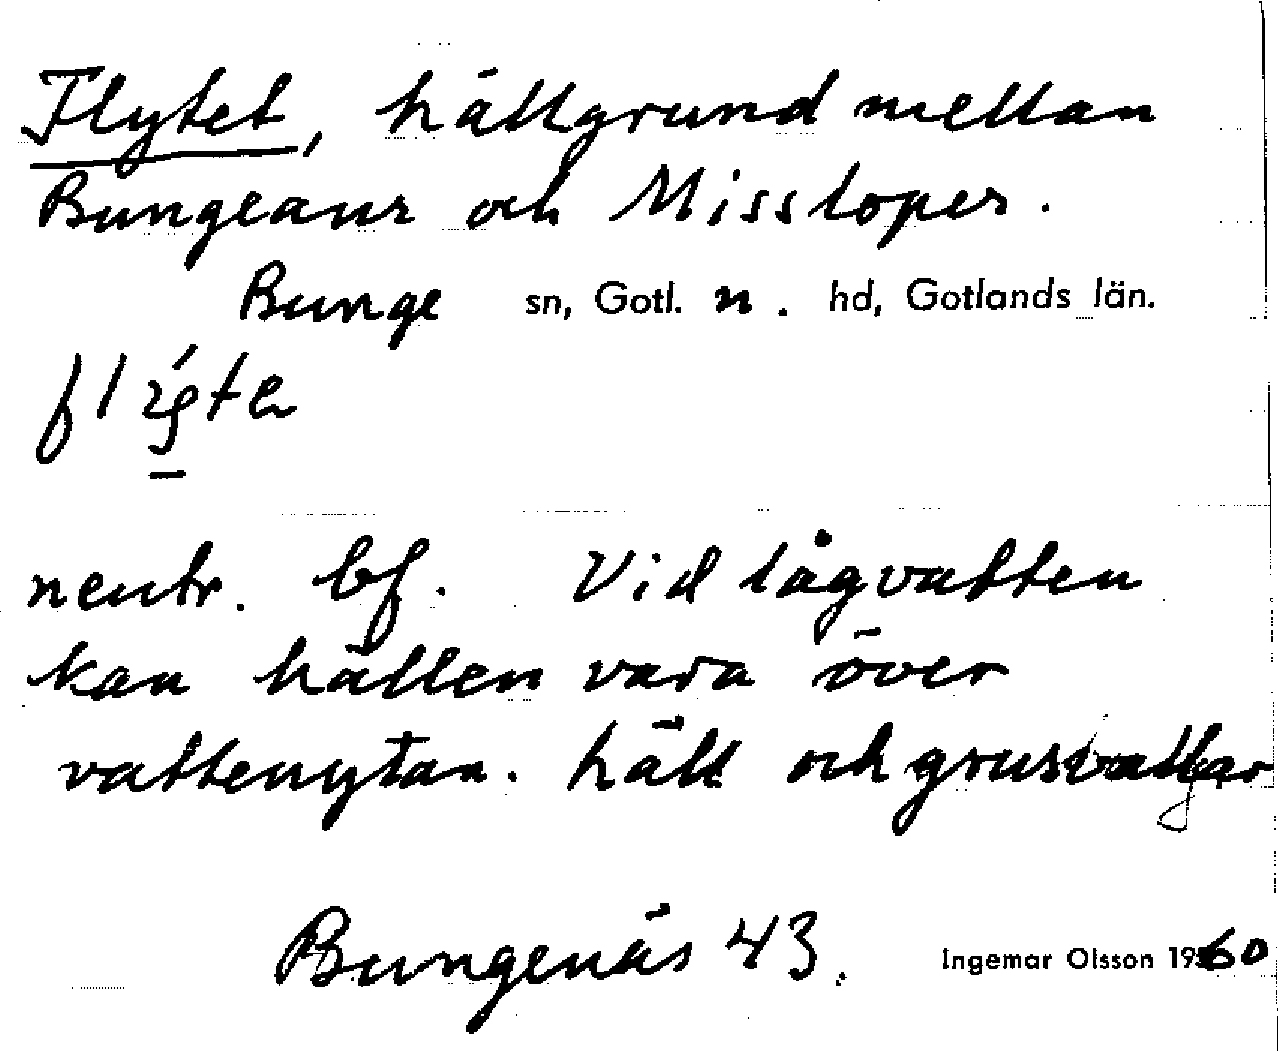 Flytet, hällgrund mellan
Bungeaur och Missloper.
Bunge sn, Gotl. n. hd, Gotlands län.
neutr. bf. Vid lågvatten
kan hällen vara över
vattenytan. häll och grusvallar
Bungenäs 43. Ingemar Olsson 1960